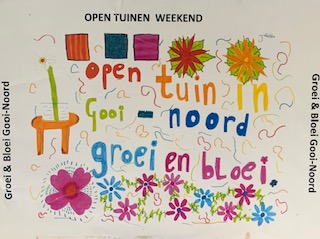 OPEN TUINEN WEEKEND
open tuin in
Gooi - noord
groei en bloei.
Groei & Bloei Gooi-Noord
Groei & Bloei Gooi-Noord
OPEN TUINEN WEEKEND